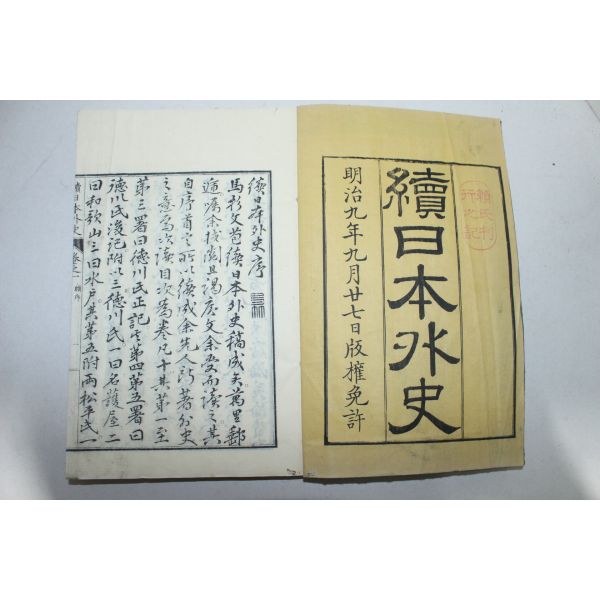 續日本外史
明治九年九月廿七日版權免許
頼氏刊
行之記
續日本外史序
馬杉文苞續日本外史稿成夫萬里郵
遞囑余校閲且謁序文余受而讀之其
自序首言所以續成余先人所著外史
之意為次讀目次為卷凡十其第一至
第三署曰德川氏正記其第四第五署曰
德川氏後記附以三德川氏一曰名護屋二
曰和歌山三曰水戸其第五附兩松平氏一
續日本外史 卷之一